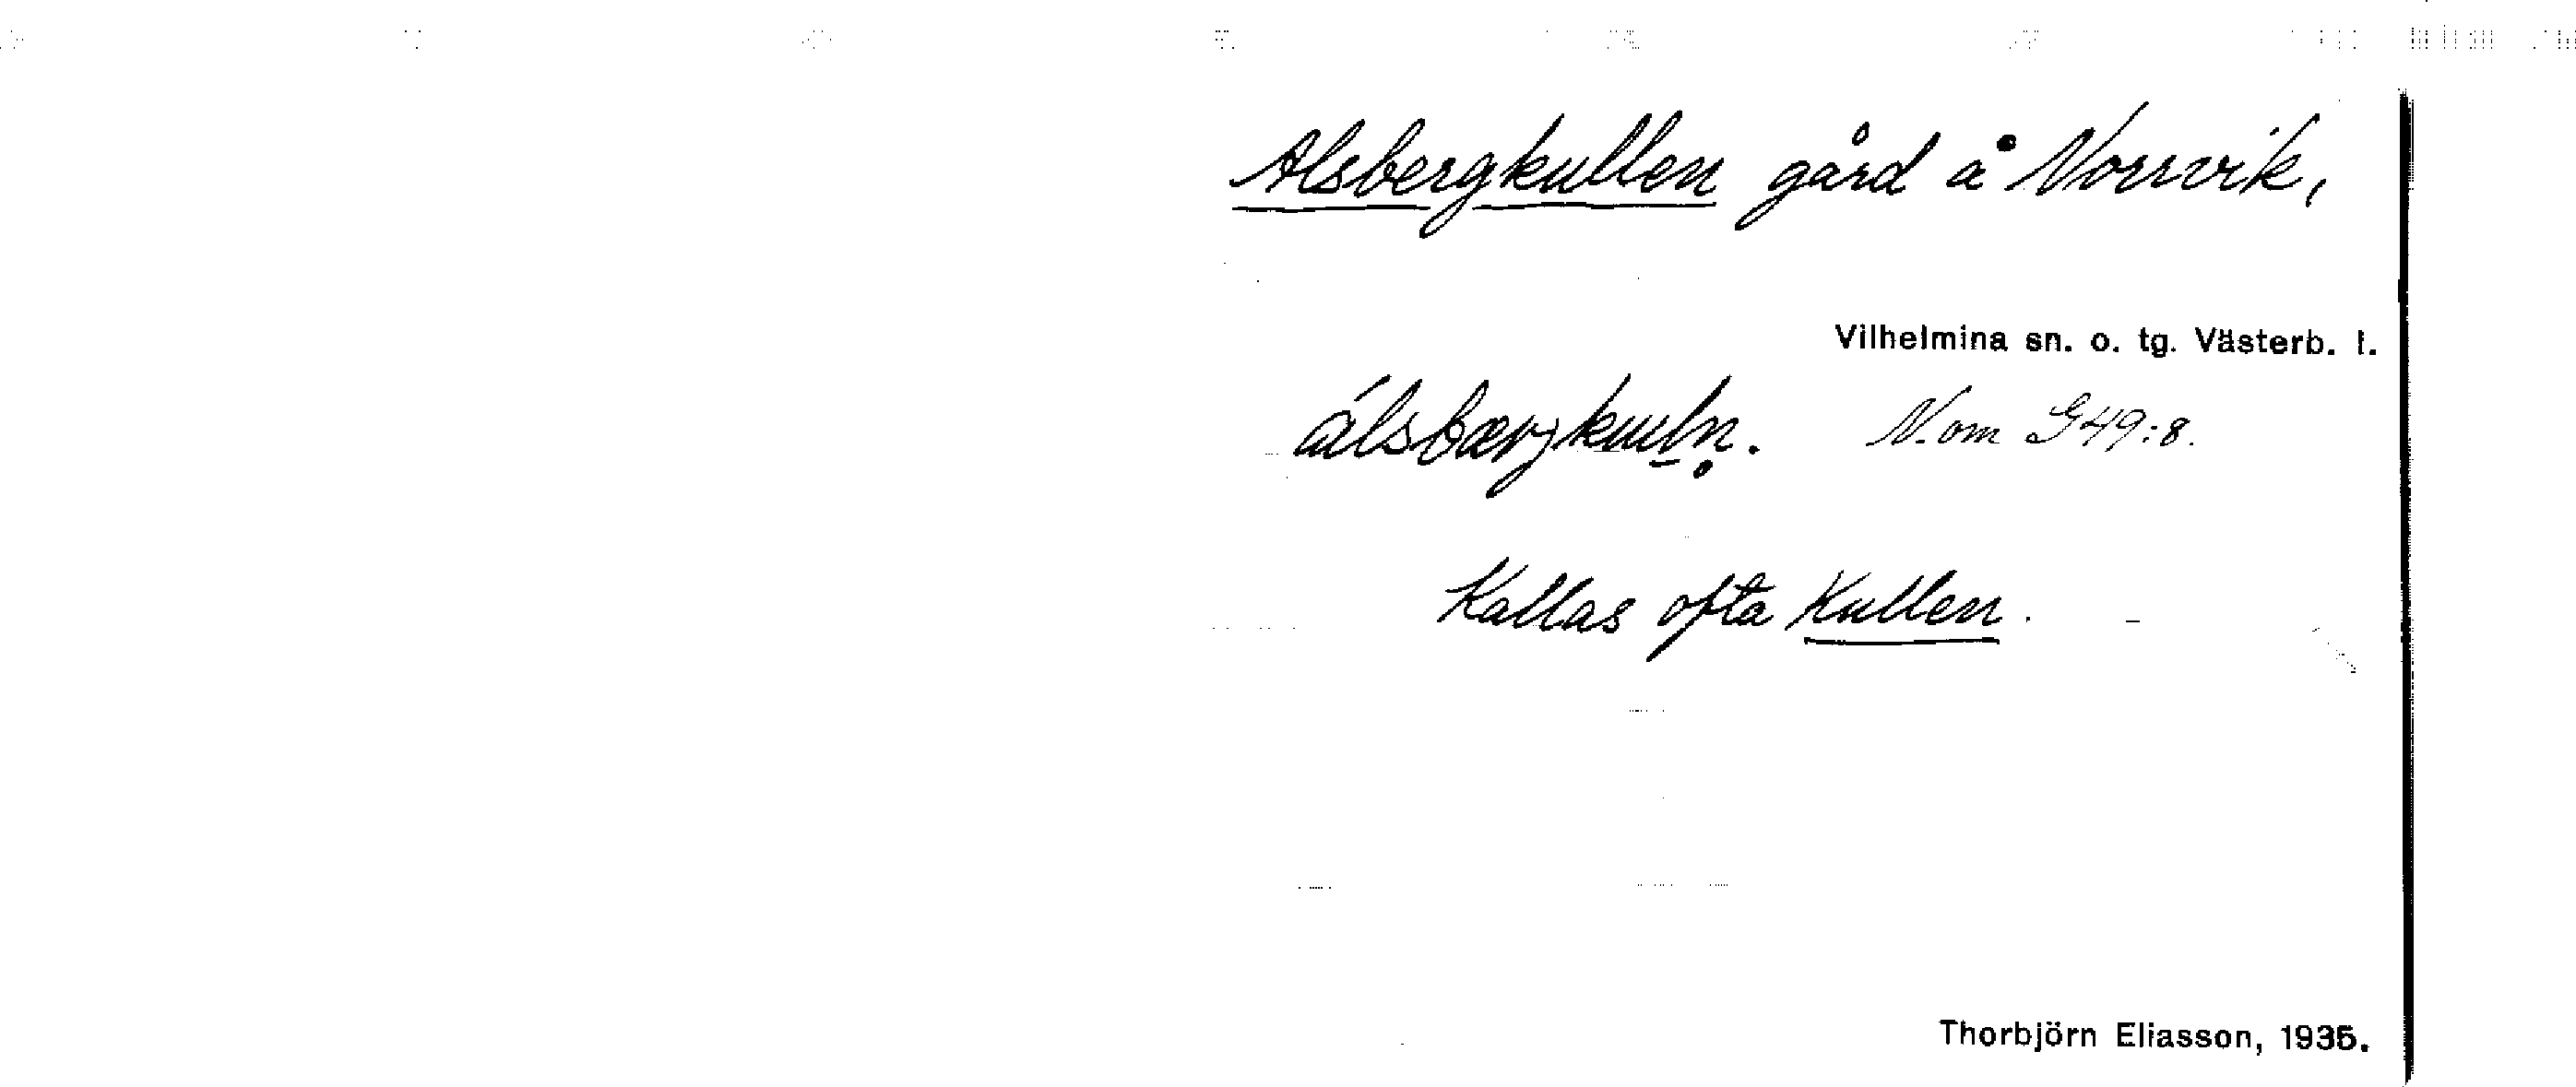 Alsbergkullen gård å Norrvik,
Vilhelmina sn. o. tg. Västerb. l.
álsbærjkuln̥. N. om G49:8.
Kallas ofta Kullen.
Thorbjörn Eliasson, 1935.